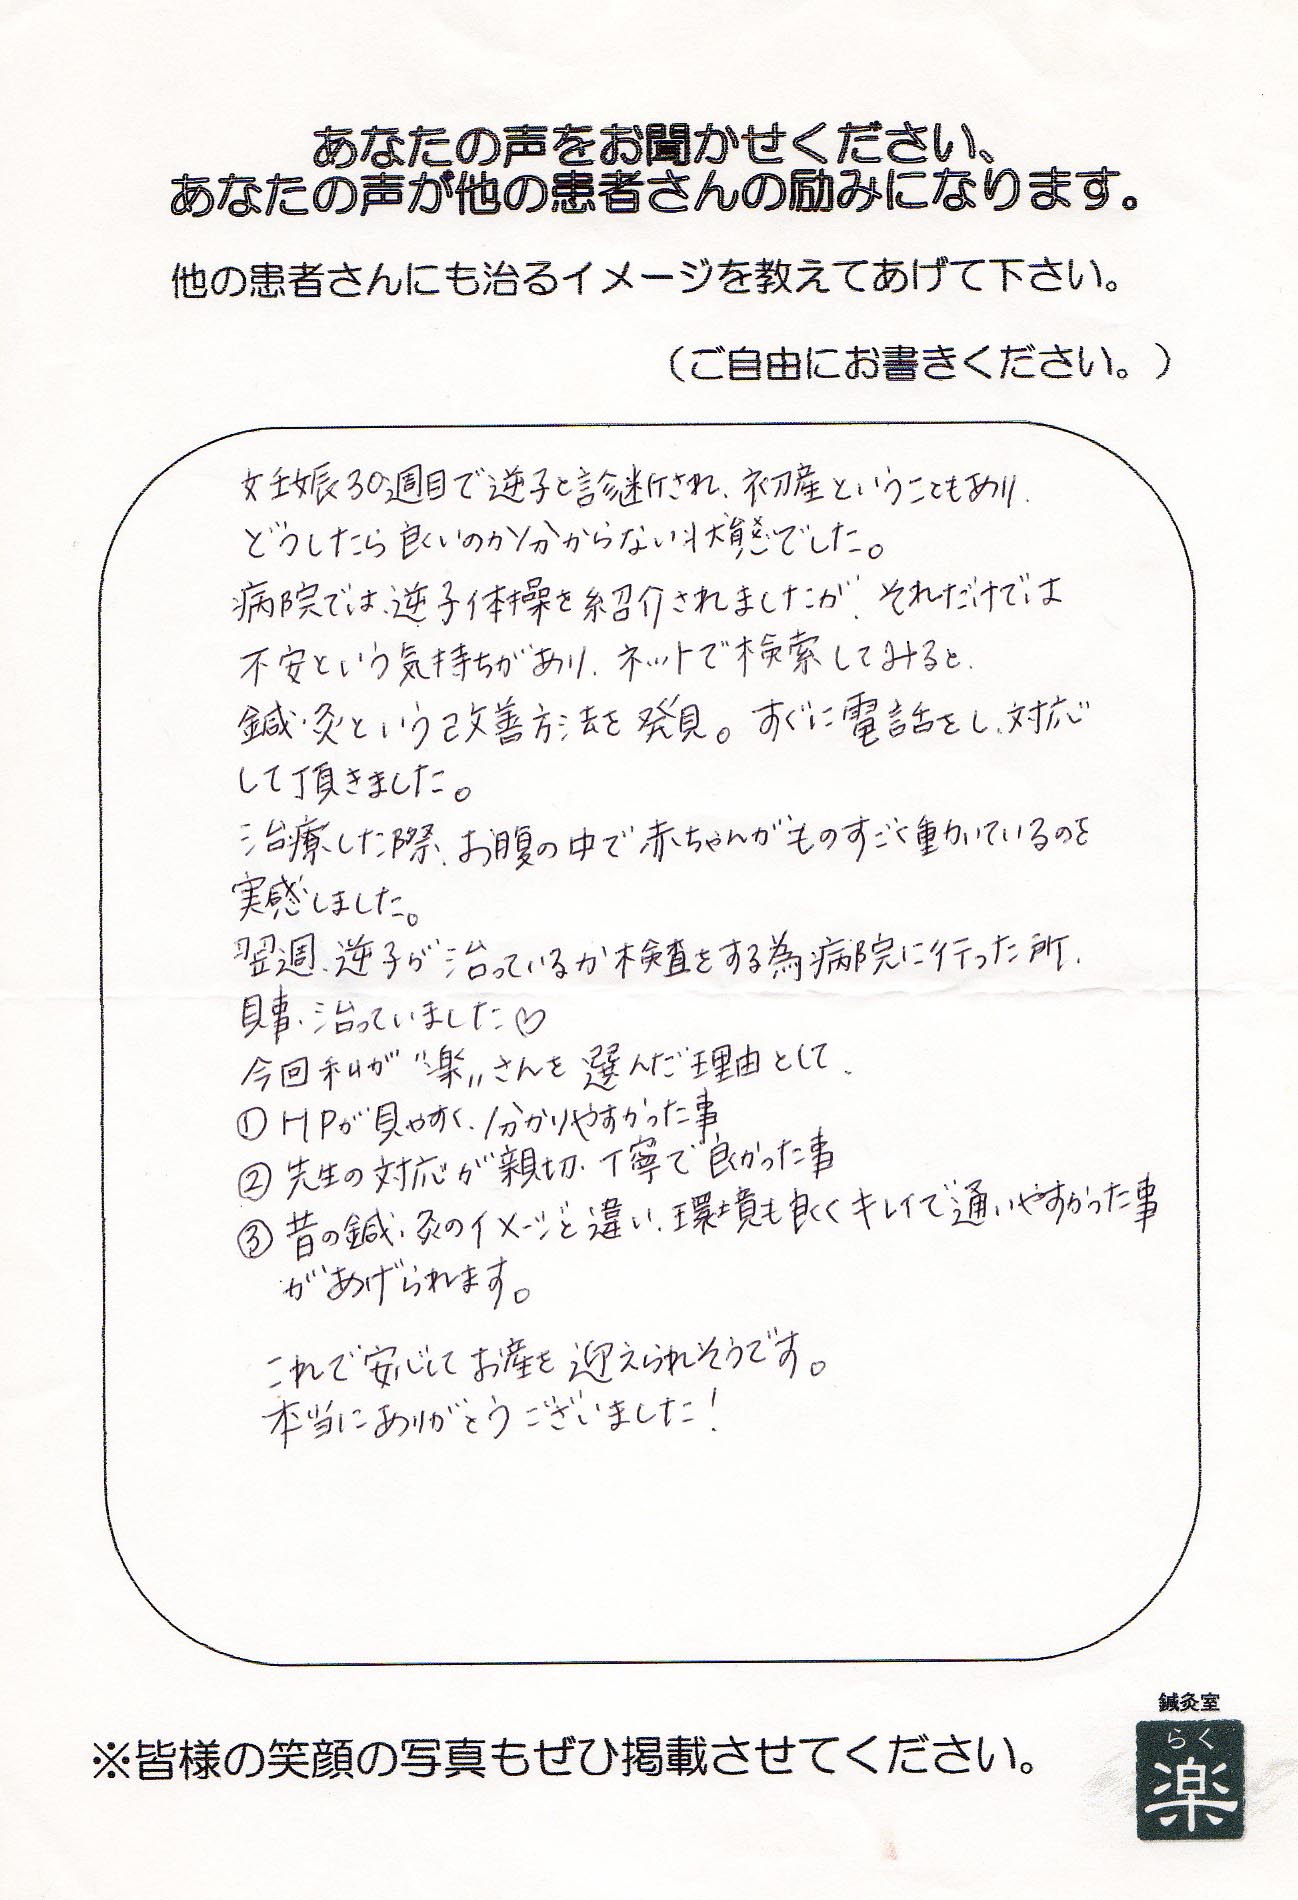 あなたの声をお聞かせください、
あなたの声が他の患者さんの励みになります。
他の患者さんにも治るイメージを教えてあげて下さい。
（ご自由にお書きください。）
妊娠30週目で逆子と診断され、初産ということもあり、
どうしたら良いのか分からない状態でした。
病院では、逆子体操を紹介されましたが、それだけでは
不安という気持ちがあり、ネットで検索してみると、
鍼・灸という改善方法を発見。すぐに電話をし、対応
して頂きました。
治療した際、お腹の中で赤ちゃんがものすごく動いているのを
実感しました。
翌週、逆子が治っているか検査をする為病院に行った所、
見事、治っていました♡
今回私が"楽"さんを選んだ理由として、
① HPが見やすく、分かりやすかった事
② 先生の対応が親切、丁寧で良かった事
③ 昔の鍼・灸のイメージと違い、環境も良くキレイで通いやすかった事
があげられます。
これで安心してお産を迎えられそうです。
本当にありがとうございました！
※皆様の笑顔の写真もぜひ掲載させてください。
鍼灸室
らく
楽